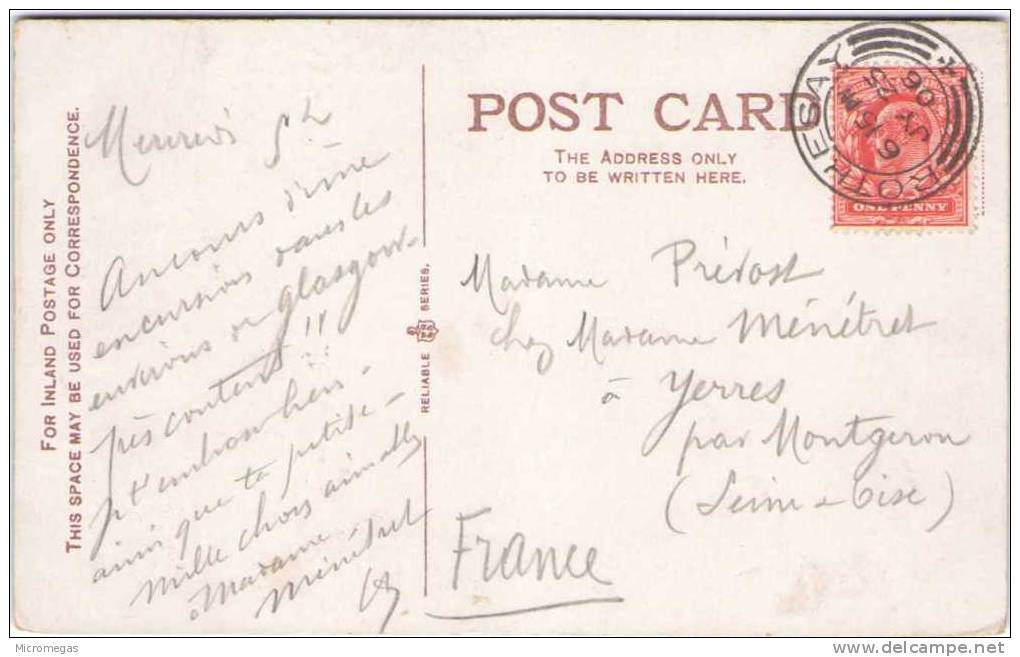 FOR INLAND POSTAGE ONLY
THIS SPACE MAY BE USED FOR CORRESPONDENCE.
Mercredi 5h
Au cours d'une
excursion dans les
environs de Glasgow.
très content !!
je t'embrasse bien
ainsi que ta petite
mille choses aimables
à Madame
Ménétret
RELIABLE SERIES.
POST CARD
THE ADDRESS ONLY
TO BE WRITTEN HERE.
ROTHESAY
JY
06
ONE PENNY
Madame Prévost
chez Madame Ménétret
à Yerres
par Montgeron
(Seine & Oise)
France
Micromegas
delcampe.net